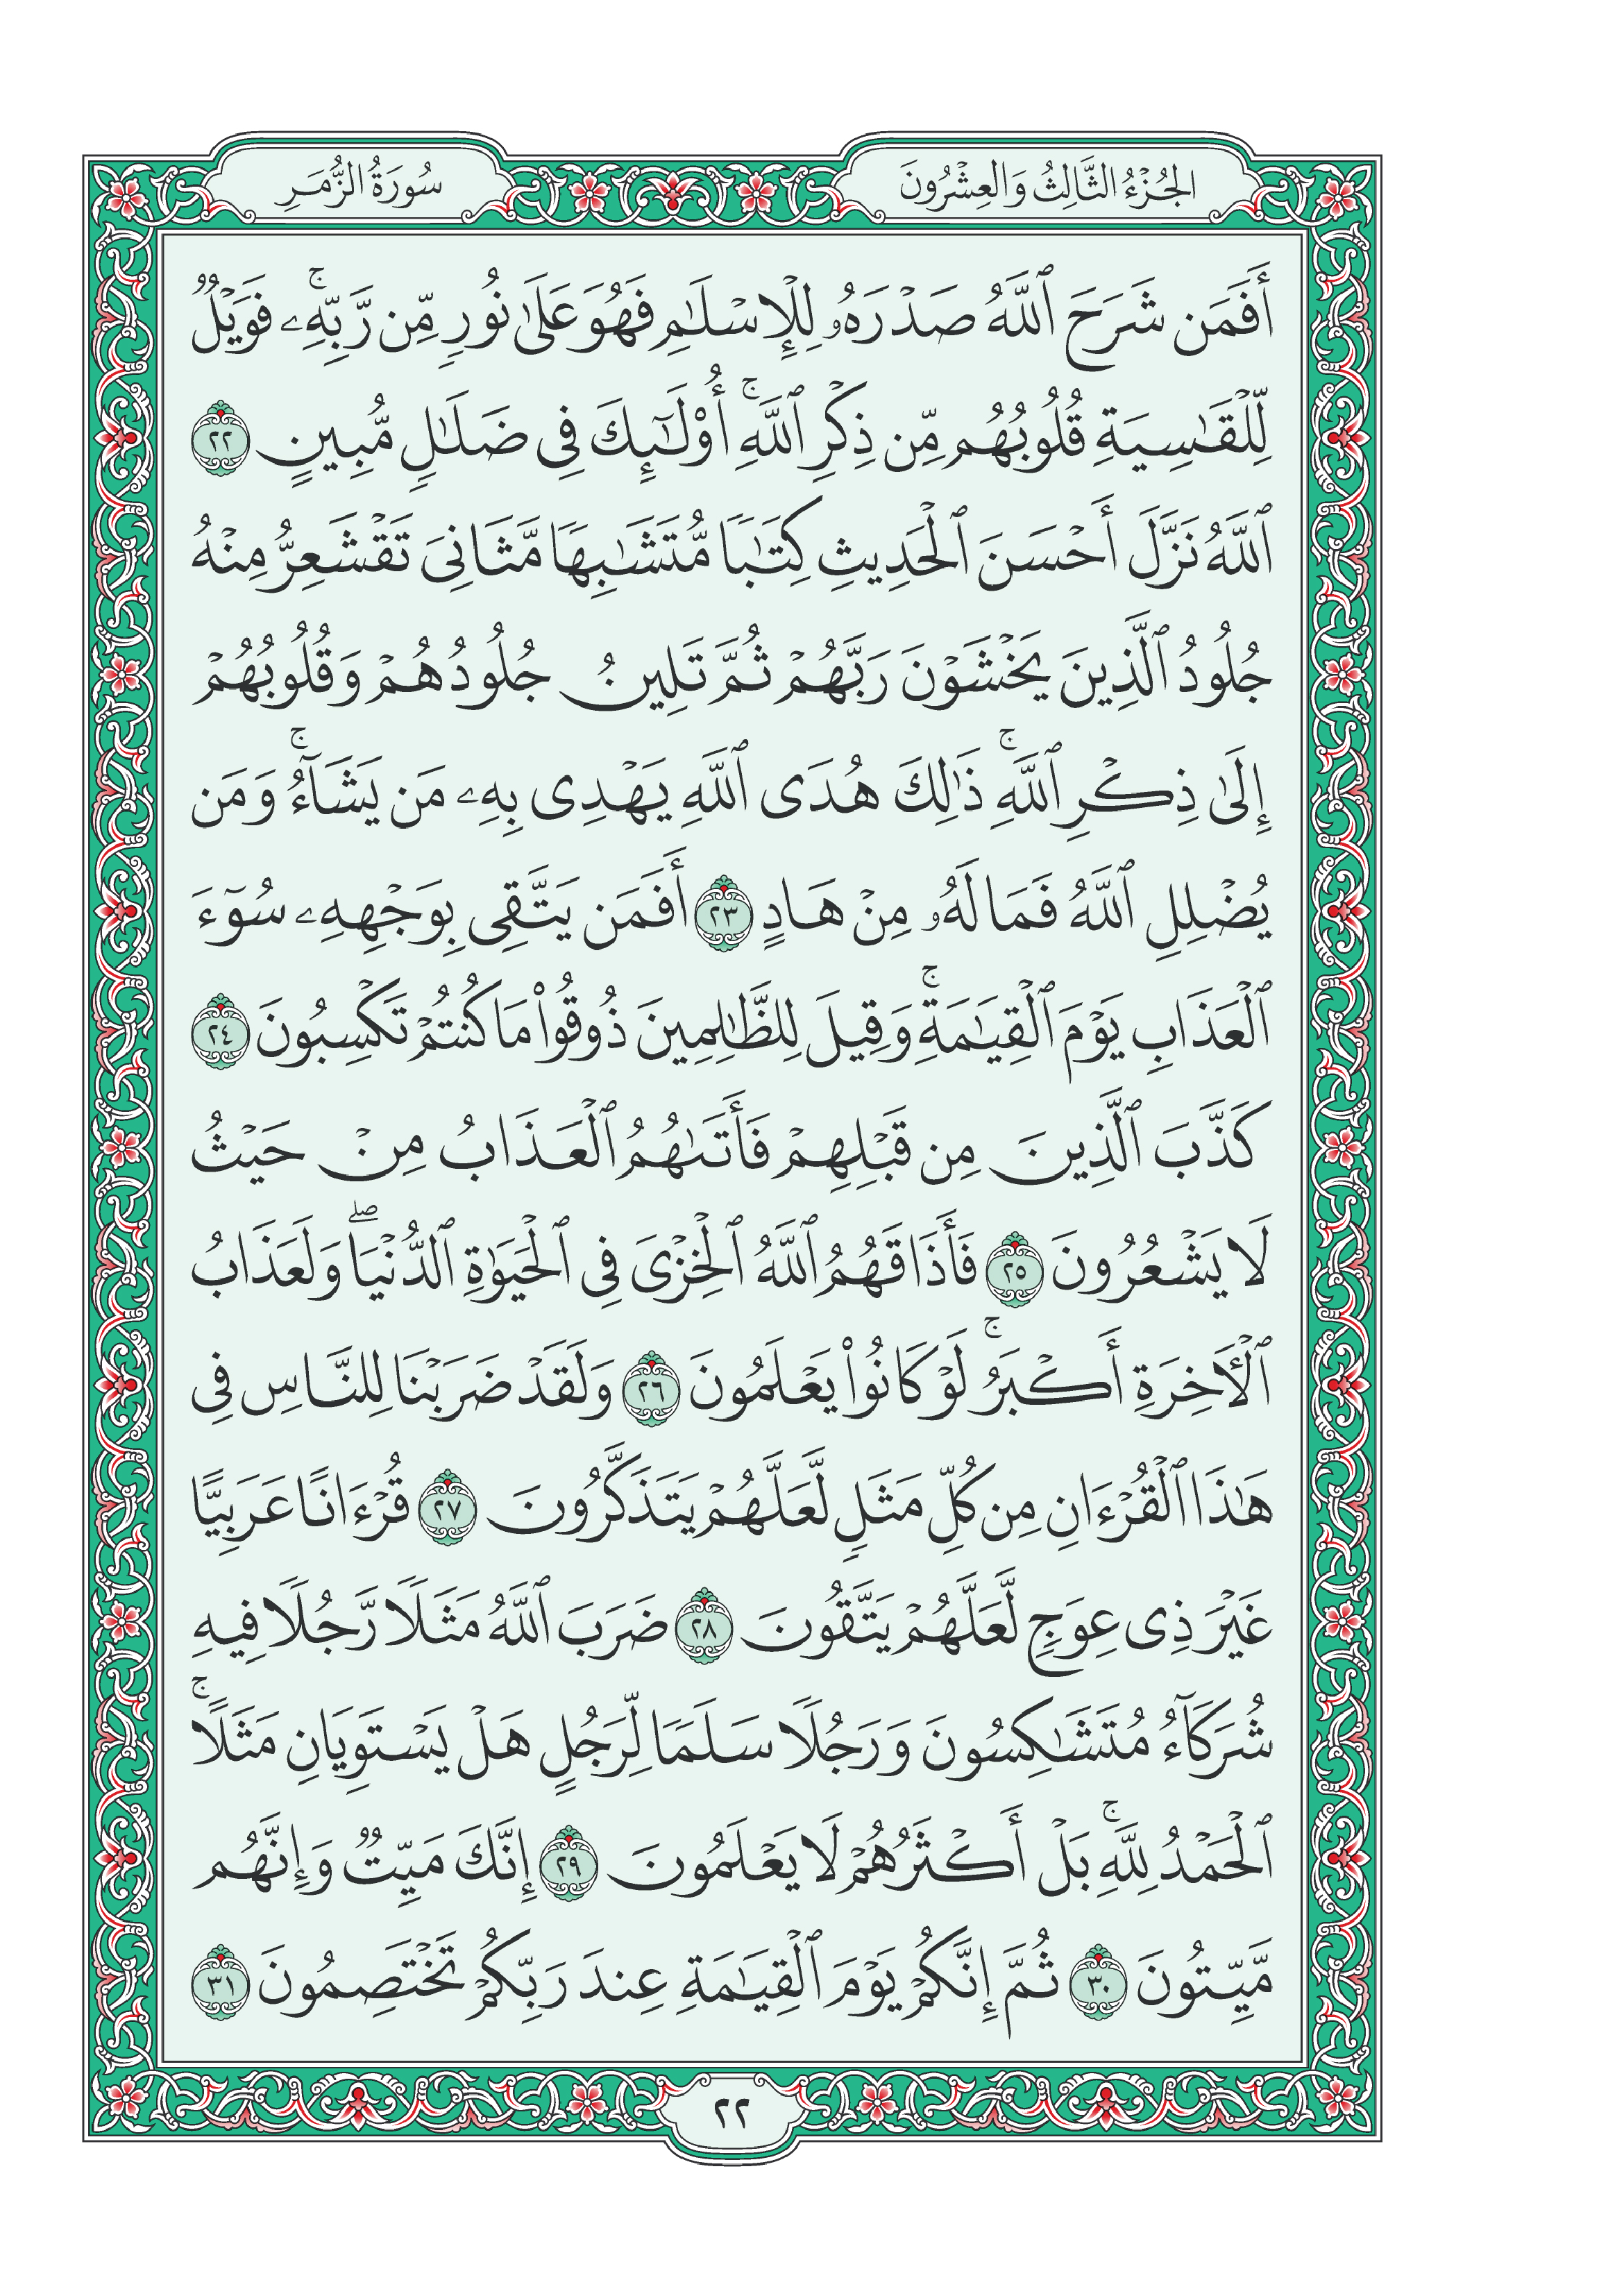 الجُزْءُ الثَّالِثُ وَالعِشْرُونَ
سُورَةُ الزُّمَرِ
أَفَمَن شَرَحَ ٱللَّهُ صَدْرَهُۥ لِلْإِسْلَٰمِ فَهُوَ عَلَىٰ نُورٍ مِّن رَّبِّهِۦۚ فَوَيْلٌ
لِّلْقَٰسِيَةِ قُلُوبُهُم مِّن ذِكْرِ ٱللَّهِۚ أُوْلَٰٓئِكَ فِى ضَلَٰلٍ مُّبِينٍ ٢٢
ٱللَّهُ نَزَّلَ أَحْسَنَ ٱلْحَدِيثِ كِتَٰبًا مُّتَشَٰبِهًا مَّثَانِىَ تَقْشَعِرُّ مِنْهُ
جُلُودُ ٱلَّذِينَ يَخْشَوْنَ رَبَّهُمْ ثُمَّ تَلِينُ جُلُودُهُمْ وَقُلُوبُهُمْ
إِلَىٰ ذِكْرِ ٱللَّهِۚ ذَٰلِكَ هُدَى ٱللَّهِ يَهْدِى بِهِۦ مَن يَشَآءُۚ وَمَن
يُضْلِلِ ٱللَّهُ فَمَا لَهُۥ مِنْ هَادٍ ٢٣ أَفَمَن يَتَّقِى بِوَجْهِهِۦ سُوٓءَ
ٱلْعَذَابِ يَوْمَ ٱلْقِيَٰمَةِۚ وَقِيلَ لِلظَّٰلِمِينَ ذُوقُوا۟ مَا كُنتُمْ تَكْسِبُونَ ٢٤
كَذَّبَ ٱلَّذِينَ مِن قَبْلِهِمْ فَأَتَىٰهُمُ ٱلْعَذَابُ مِنْ حَيْثُ
لَا يَشْعُرُونَ ٢٥ فَأَذَاقَهُمُ ٱللَّهُ ٱلْخِزْىَ فِى ٱلْحَيَوٰةِ ٱلدُّنْيَاۖ وَلَعَذَابُ
ٱلْءَاخِرَةِ أَكْبَرُۚ لَوْ كَانُوا۟ يَعْلَمُونَ ٢٦ وَلَقَدْ ضَرَبْنَا لِلنَّاسِ فِى
هَٰذَا ٱلْقُرْءَانِ مِن كُلِّ مَثَلٍ لَّعَلَّهُمْ يَتَذَكَّرُونَ ٢٧ قُرْءَانًا عَرَبِيًّا
غَيْرَ ذِى عِوَجٍ لَّعَلَّهُمْ يَتَّقُونَ ٢٨ ضَرَبَ ٱللَّهُ مَثَلًا رَّجُلًا فِيهِ
شُرَكَآءُ مُتَشَٰكِسُونَ وَرَجُلًا سَلَمًا لِّرَجُلٍ هَلْ يَسْتَوِيَانِ مَثَلًاۚ
ٱلْحَمْدُ لِلَّهِۚ بَلْ أَكْثَرُهُمْ لَا يَعْلَمُونَ ٢٩ إِنَّكَ مَيِّتٌ وَإِنَّهُم
مَّيِّتُونَ ٣٠ ثُمَّ إِنَّكُمْ يَوْمَ ٱلْقِيَٰمَةِ عِندَ رَبِّكُمْ تَخْتَصِمُونَ ٣١
٢٢